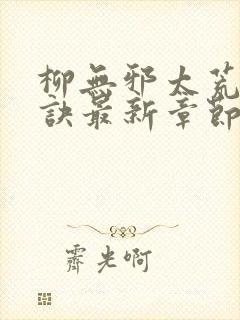 柳無邪太荒
訣最新章節
霽光啊